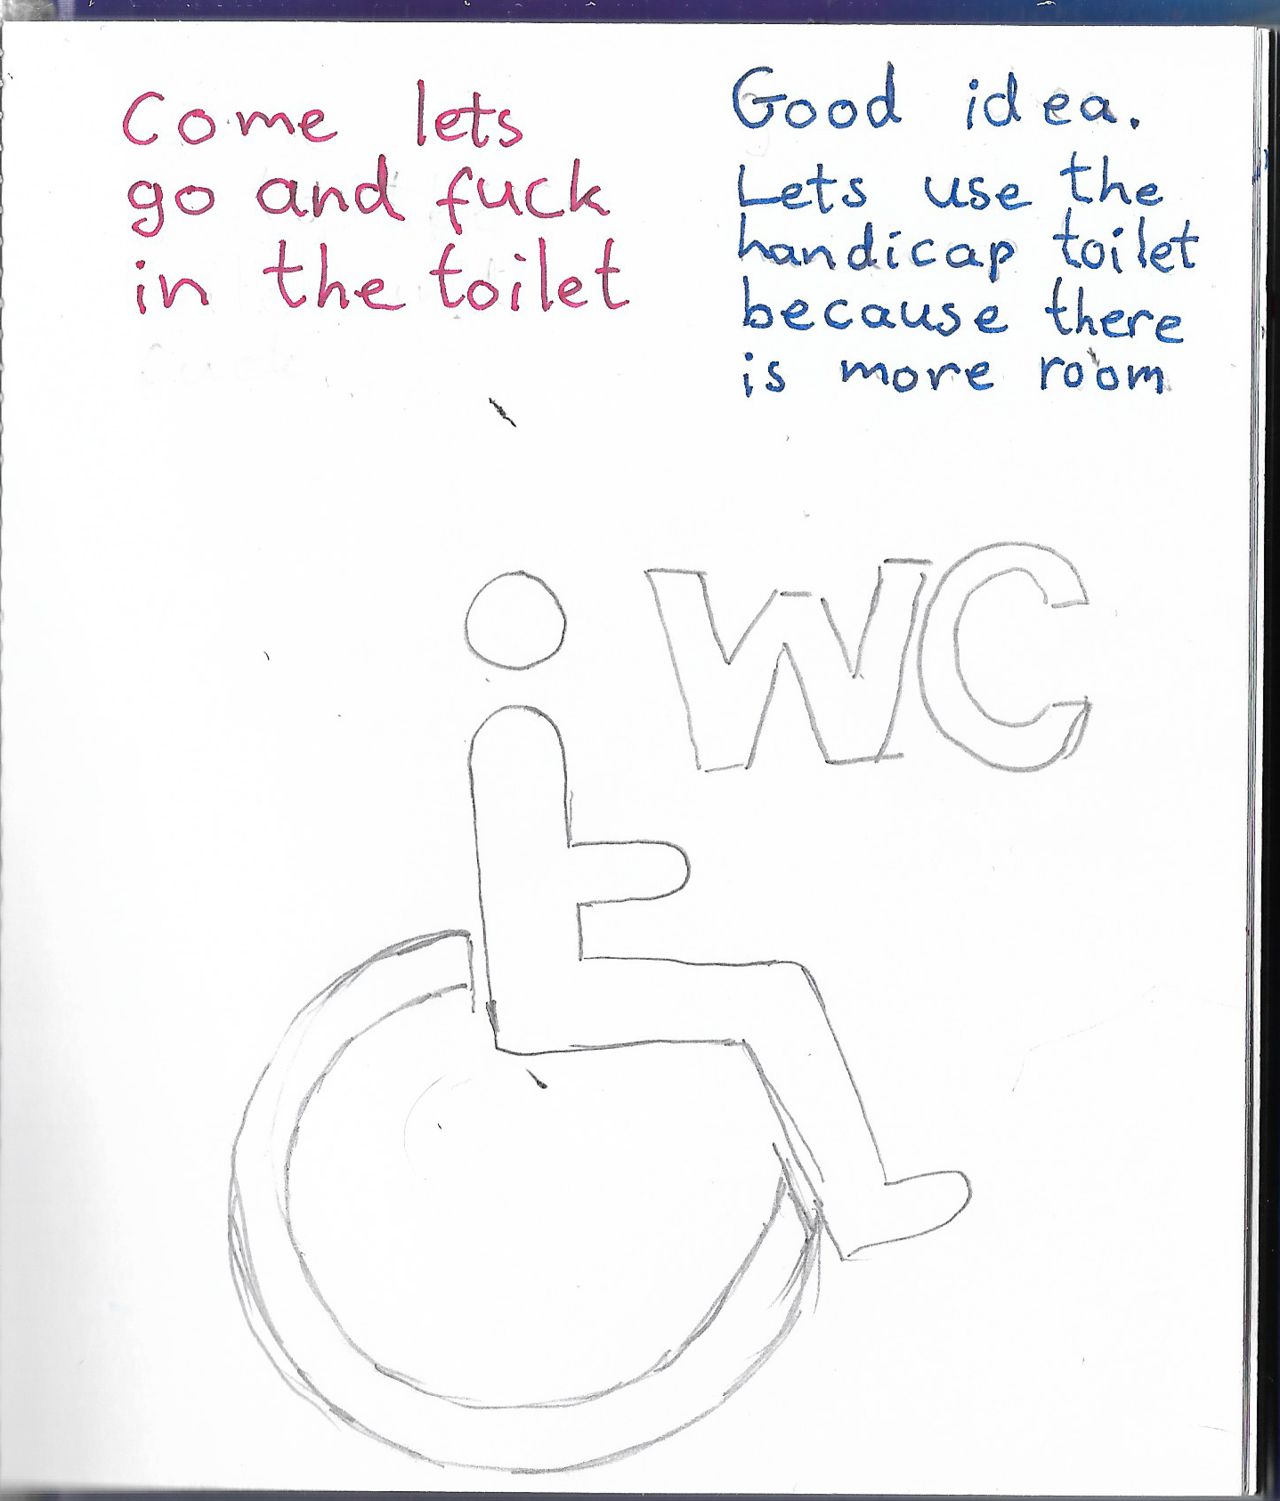 Come lets
go and fuck
in the toilet
Good idea.
Lets use the
handicap toilet
because there
is more room
WC